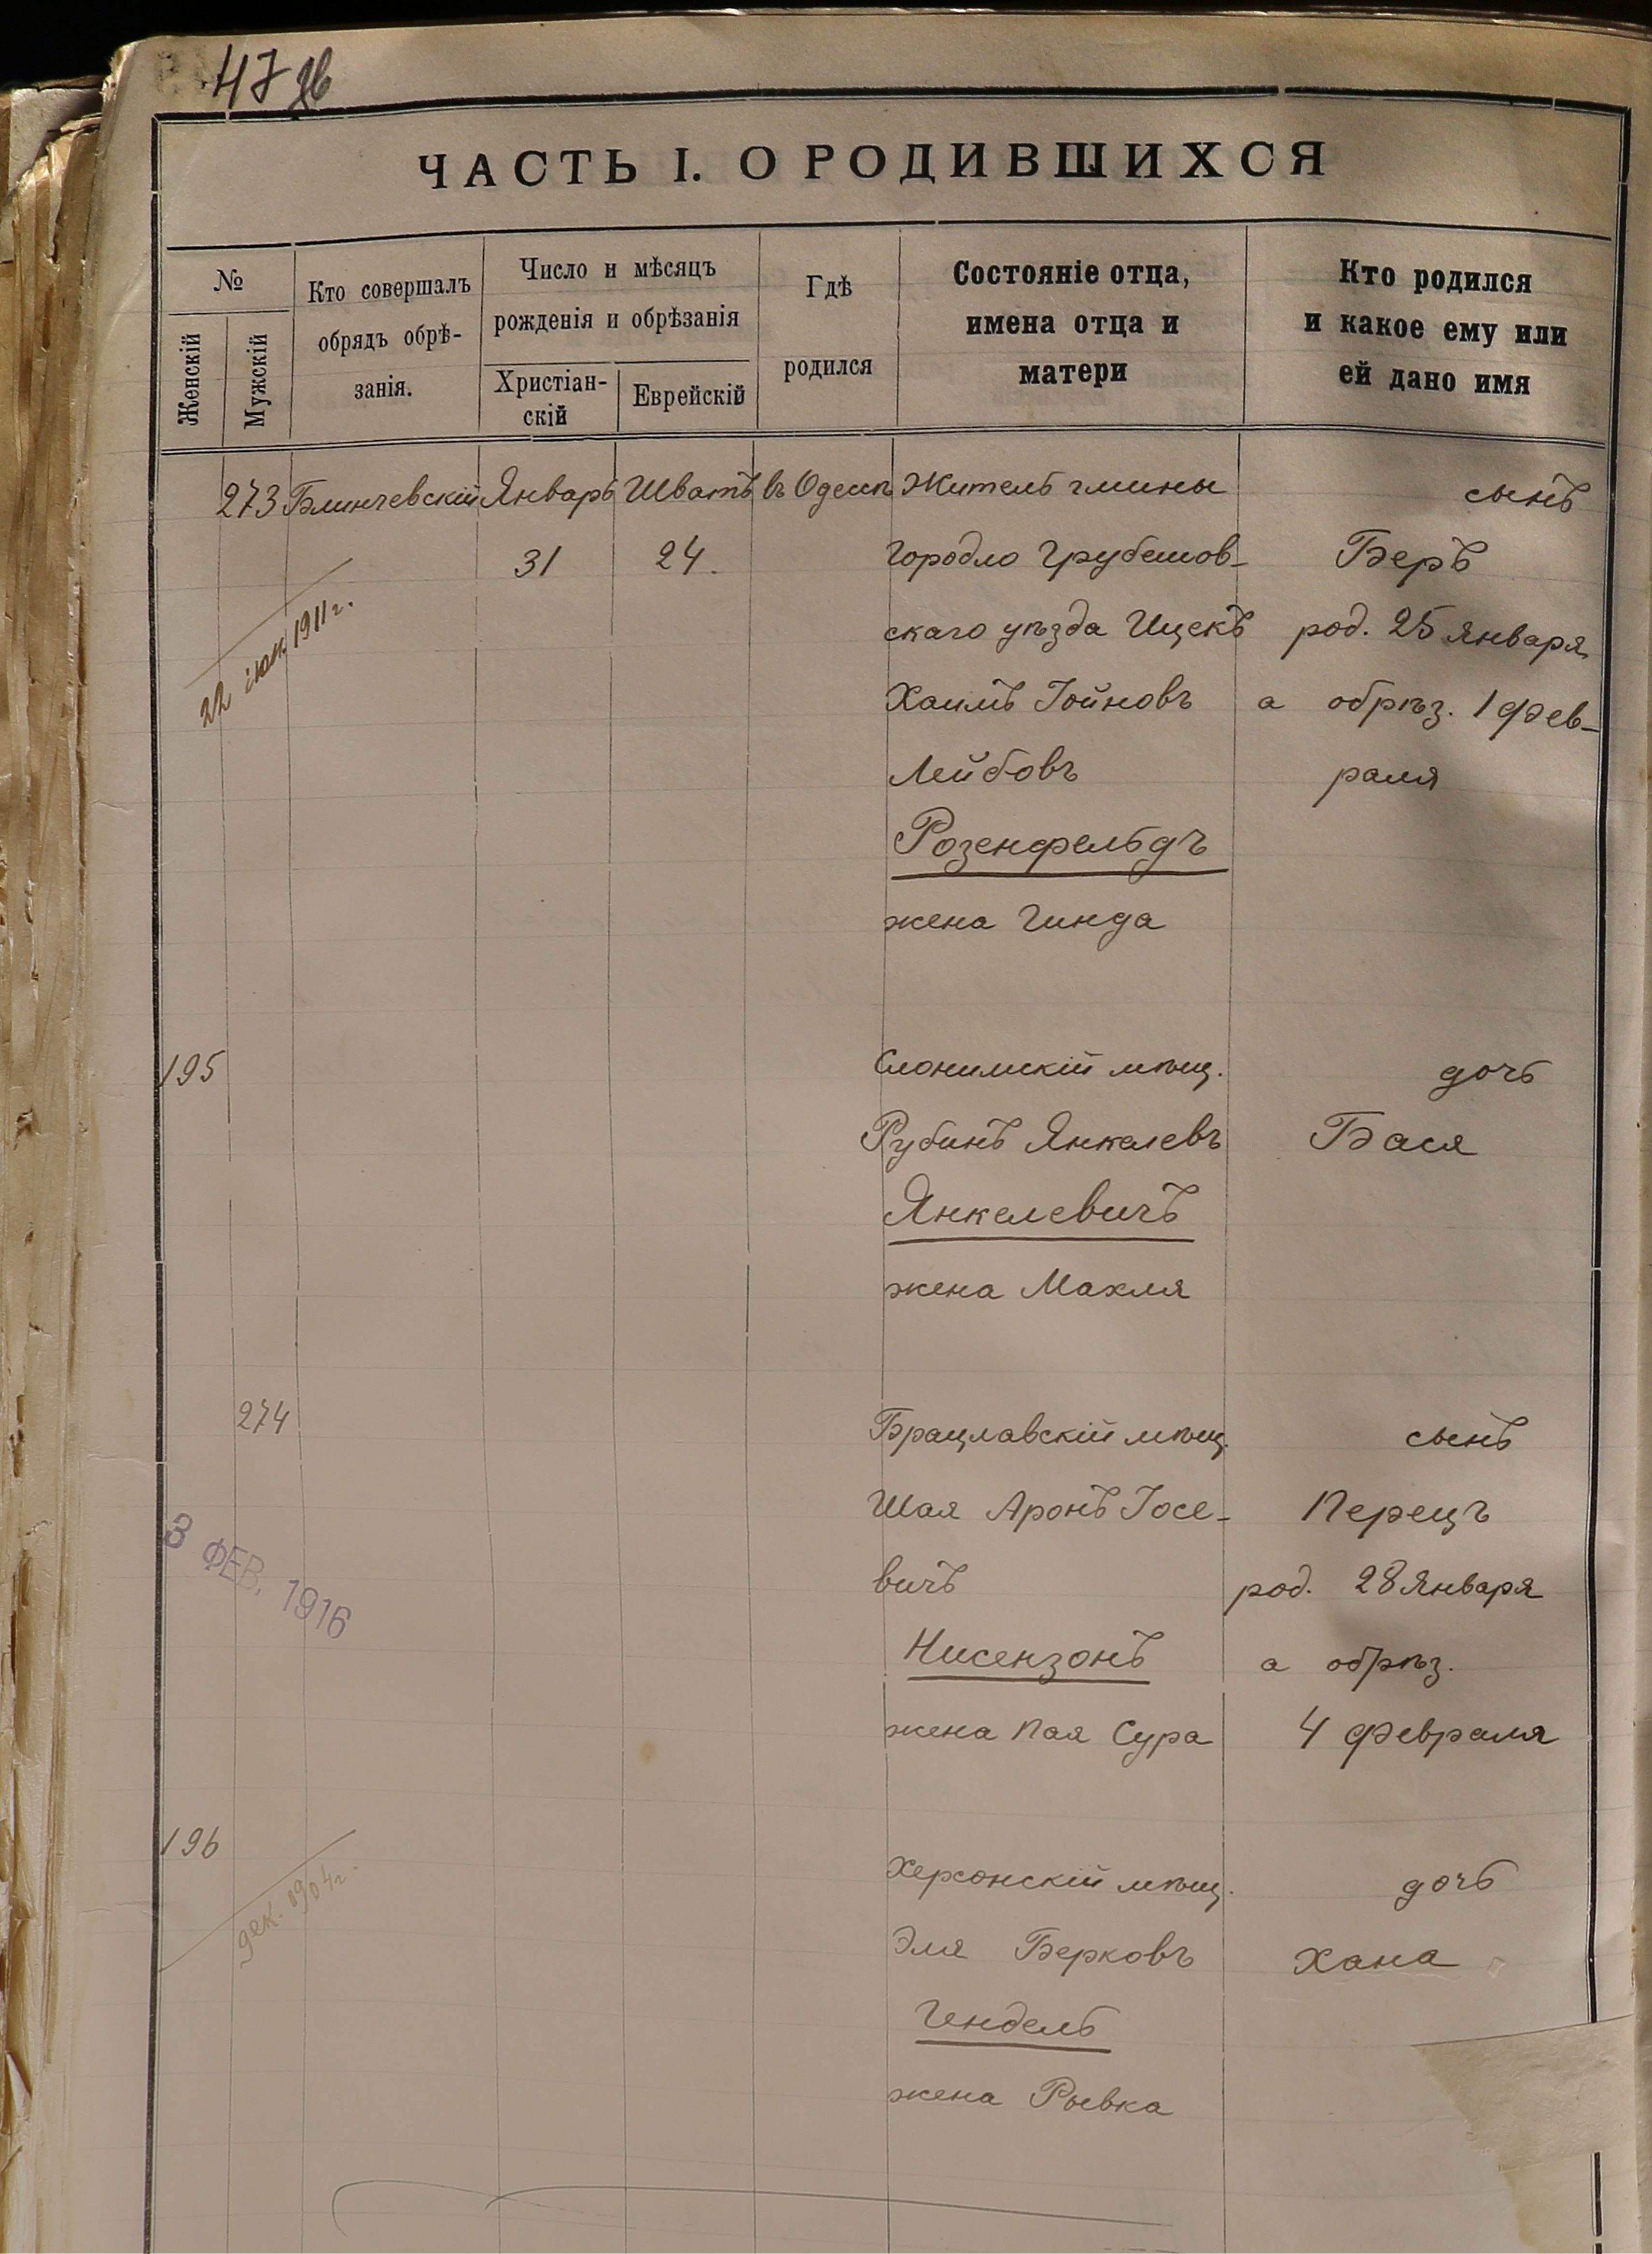 47 об
ЧАСТЬ I. О РОДИВШИХСЯ
№
Женскій
Мужскій
Кто совершалъ
обрядъ обрѣ-
занія.
Число и мѣсяцъ
рожденія и обрѣзанія
Христіан-
скій
Еврейскій
Гдѣ
родился
Состояніе отца,
имена отца и
матери
Кто родился
и какое ему или
ей дано имя
273 Блинчевскій Январь Шватъ въ Одессѣ Житель гмины сынъ
31 24. Городло Грубешов- Беръ
скаго уѣзда Ицекъ род. 25 Января
22 іюн. 1911 г.
Хаимъ Іойновъ а обрѣз. 1 Фев-
Лейбовъ раля
Розенфельдъ
жена Гинда
195 Слонимскій мѣщ. дочь
Рубинъ Янкелевъ Бася
Янкелевичъ
жена Махля
274 Брацлавскій мѣщ. сынъ
Шая Аронъ Іосе- Перецъ
3 ФЕВ. 1916
вичъ род. 28 Января
Нисензонъ а обрѣз.
жена Пая Сура 4 Февраля
196 Херсонскій мѣщ. дочь
дек. 1904 г.
Эля Берковъ Хана
Гендель
жена Рывка